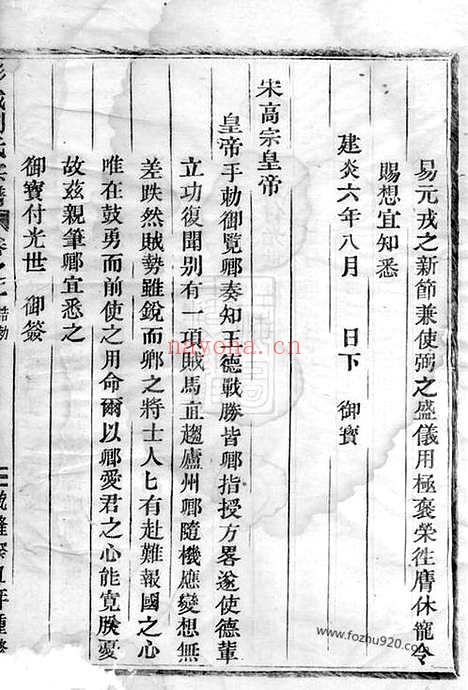 易元戎之新節兼使弼之盛儀用極褒榮徃膺休寵令
賜想宜知悉
建炎六年八月　日下　御寳
宋高宗皇帝
皇帝手勅御覽卿奏知王德戰勝皆卿指授方畧遂使德輩
立功復聞別有一項賊馬直趨廬州卿隨機應變想無
差跌然賊勢雖銳而卿之將士人匕有赴難報國之心
唯在鼓勇而前使之用命爾以卿愛君之心能寛朕憂
故兹親筆卿宜悉之
御寳付光世　御簽
彭城劉氏宗譜　卷之　誥勅
nayona.cn
www.fozhu920.com